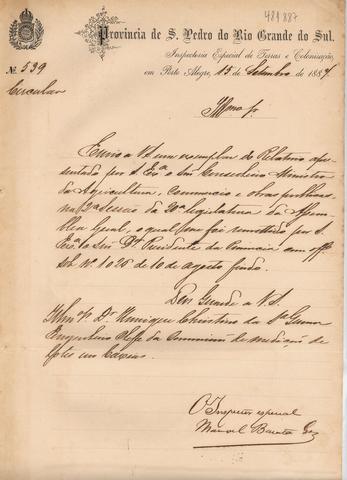 481887
Provincia de S. Pedro do Rio Grande do Sul.
Inspectoria Especial de Terras e Colonisação,
em Porto Alegre, 15 de Setembro de 1887.
Nº 539
Circular
Illmo Sr.
Envio a VS. um exemplar do Relatorio apre-
sentado por S. Exª o Snr Conselheiro Ministro
da Agricultura, Commercio e obras publicas
na 2ª sessão da 20ª legislatura da Assem-
blea Geral, o qual me foi remettido por S.
Exª o Snr Dr Presidente da Provincia em offº
sob Nº 1026 de 10 de Agosto findo.
Deus Guarde a V.S.
Illmo Sr. Dr Henrique Christino da Sª
Engenheiro Chefe da Commissão de medição de
lotes em Caxias.
O Inspector especial
Manoel